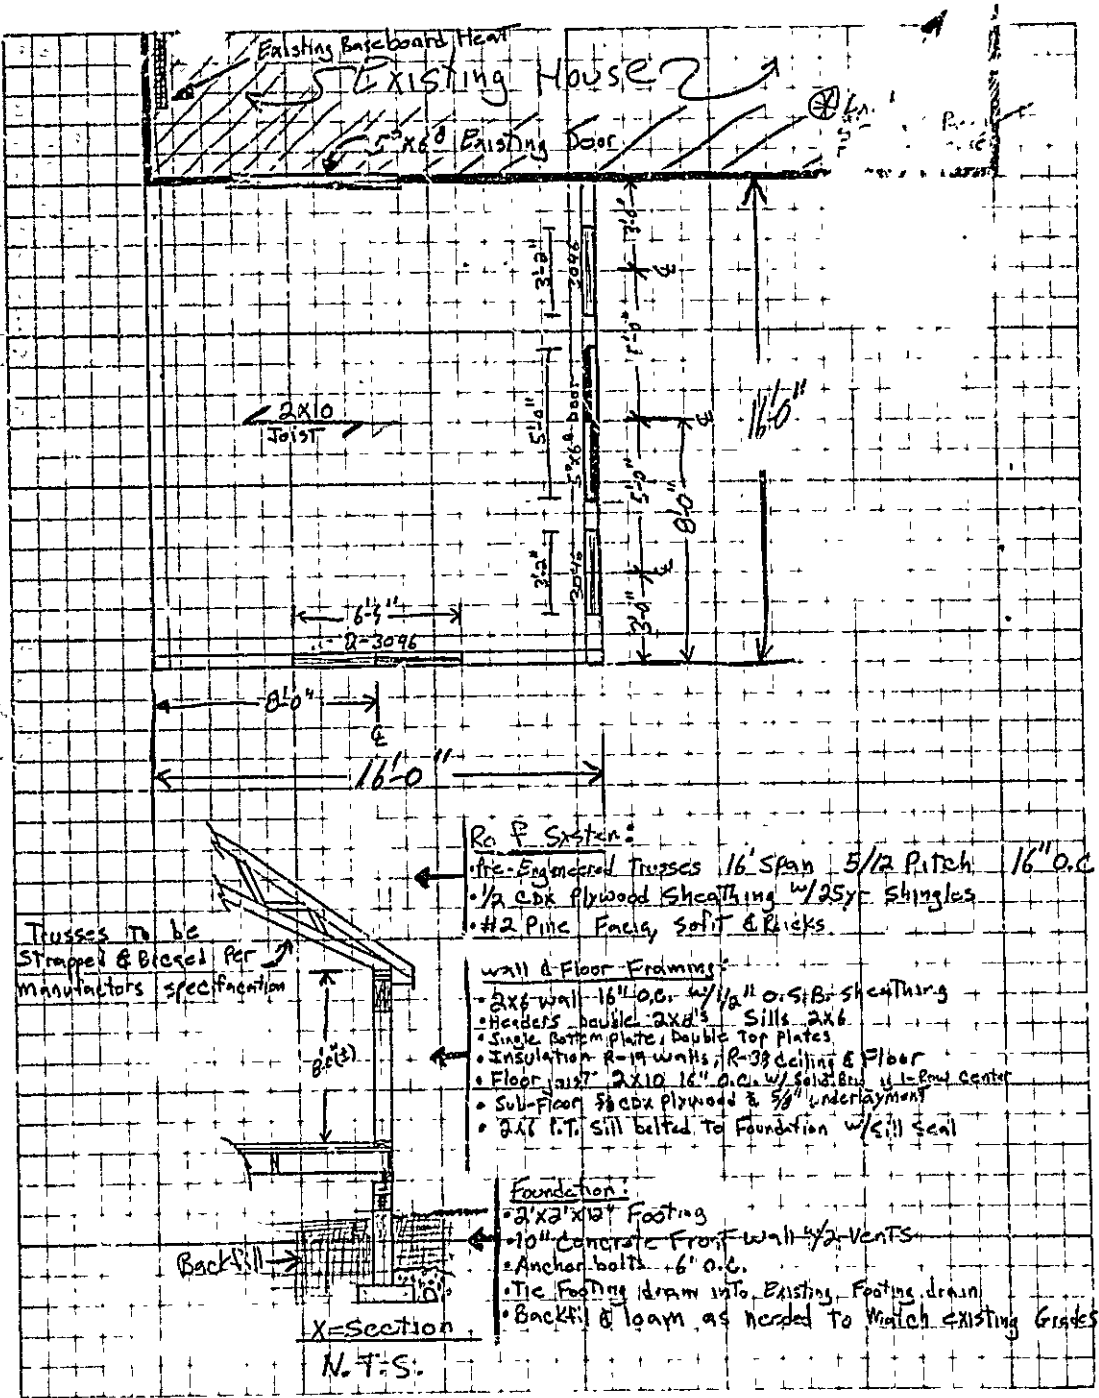 Existing Baseboard Heat
Existing House
5°x6⁸ Existing Door
3'-0"
3'-2"
3046
℄
5'-0"
16'-0"
2x10
Joist
5'-0"
5°x6⁸ Door
℄
5'-0"
8'-0"
3'-2"
3046
℄
3'-0"
6'-5"
2-3046
8'-0"
℄
16'-0"
System:
Pre-Engineered Trusses 16' Span 5/12 Pitch 16" O.C
1/2 CDX Plywood Sheathing w/25yr Shingles
#2 Pine Facia, Sofit &
Trusses to be
Strapped & Braced Per
manufactors specification
Wall & Floor Framing:
2x6 wall 16" O.C. w/1/2" O.S.B. Sheathing
Headers Double 2x8's Sills 2x6
Single Bottom plate, Double Top Plates
Insulation R-19 walls, R-38 Ceiling & Floor
Floor joist 2x10 16" O.C. w/ Solid 1-Row Center
Sub-Floor 5/8 CDX Plywood & 5/8" underlayment
2x6 P.T. Sill bolted to Foundation w/Sill Seal
Foundation:
2'x2'x12" Footing
10" Concrete Frost Wall w/2-Vents
Anchor bolts 6' O.C.
Tie Footing drain into Existing Footing drain
Backfill & loam as needed to Match existing Grades
Backfill
X-Section
N.T.S.